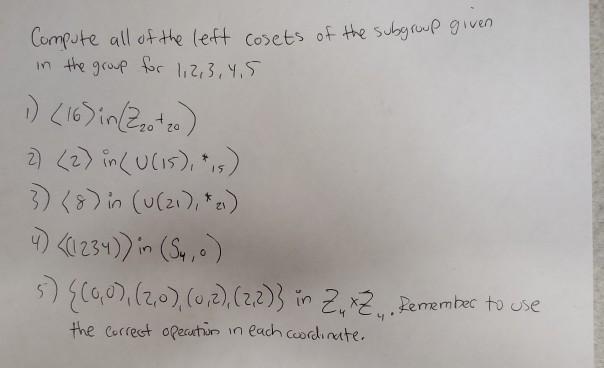 Compute all of the left cosets of the subgroup given
in the group for 1,2,3,4,5
1) <16> in (Z₂₀, +₂₀)
2) <2> in (U(15), *₁₅)
3) <8> in (U(21), *₂₁)
4) <(1234)> in (S₄, ∘)
5) {(0,0), (2,0), (0,2), (2,2)} in Z₄ x Z₄. Remember to use
the correct operation in each coordinate.